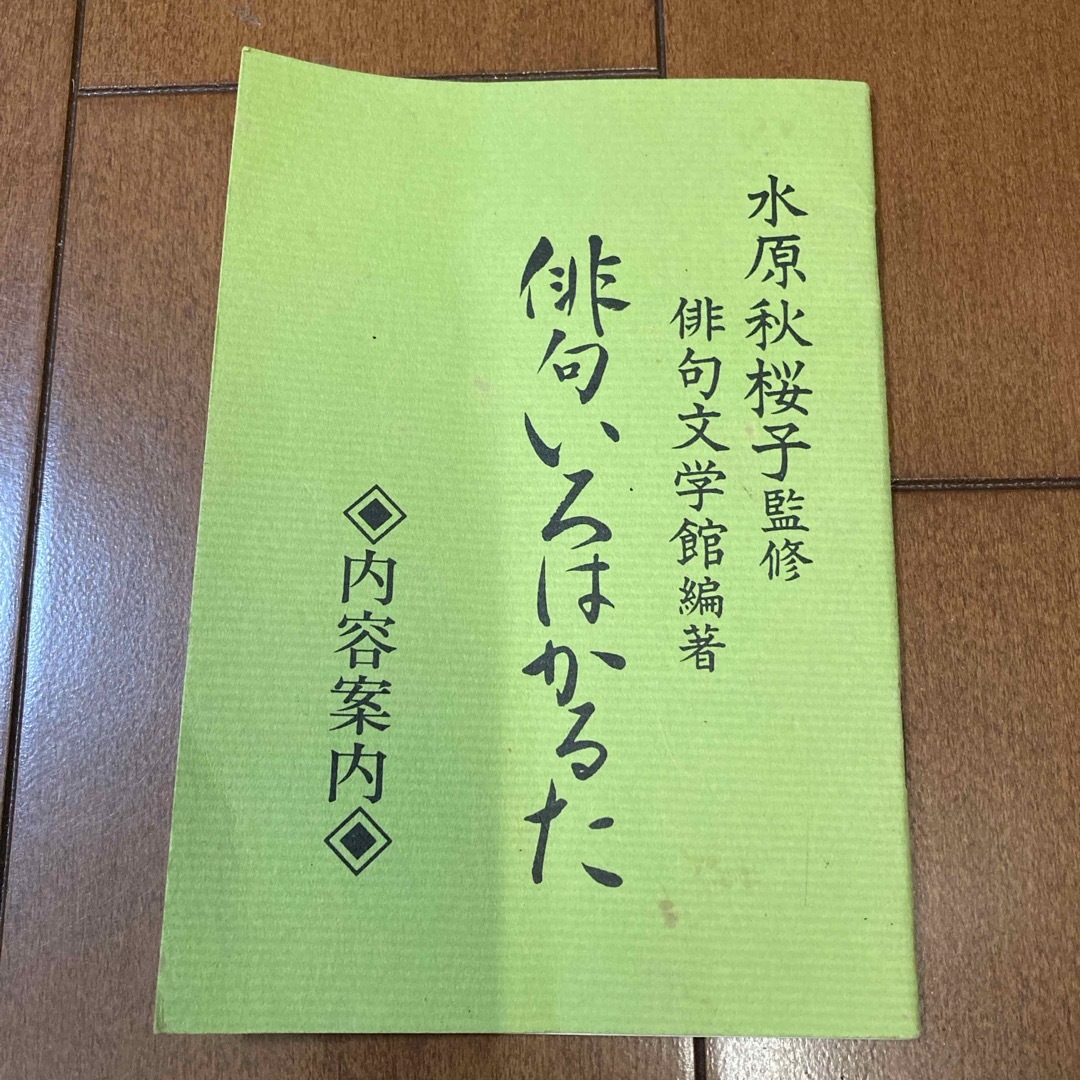 水原秋桜子監修
俳句文学館編著
俳句いろはかるた
◈内容案内◈